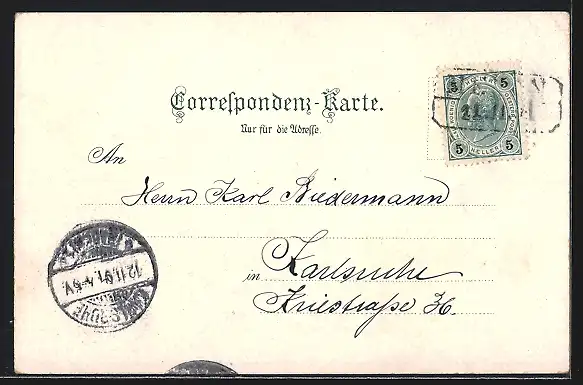 Correspondenz-Karte.
Nur für die Adresse.
5 5
HELLER
5 5
An
Herrn Karl Biedermann
in Karlsruhe
Kriestraße 36.
KARLSRUHE
12.11.01. 4-5V.